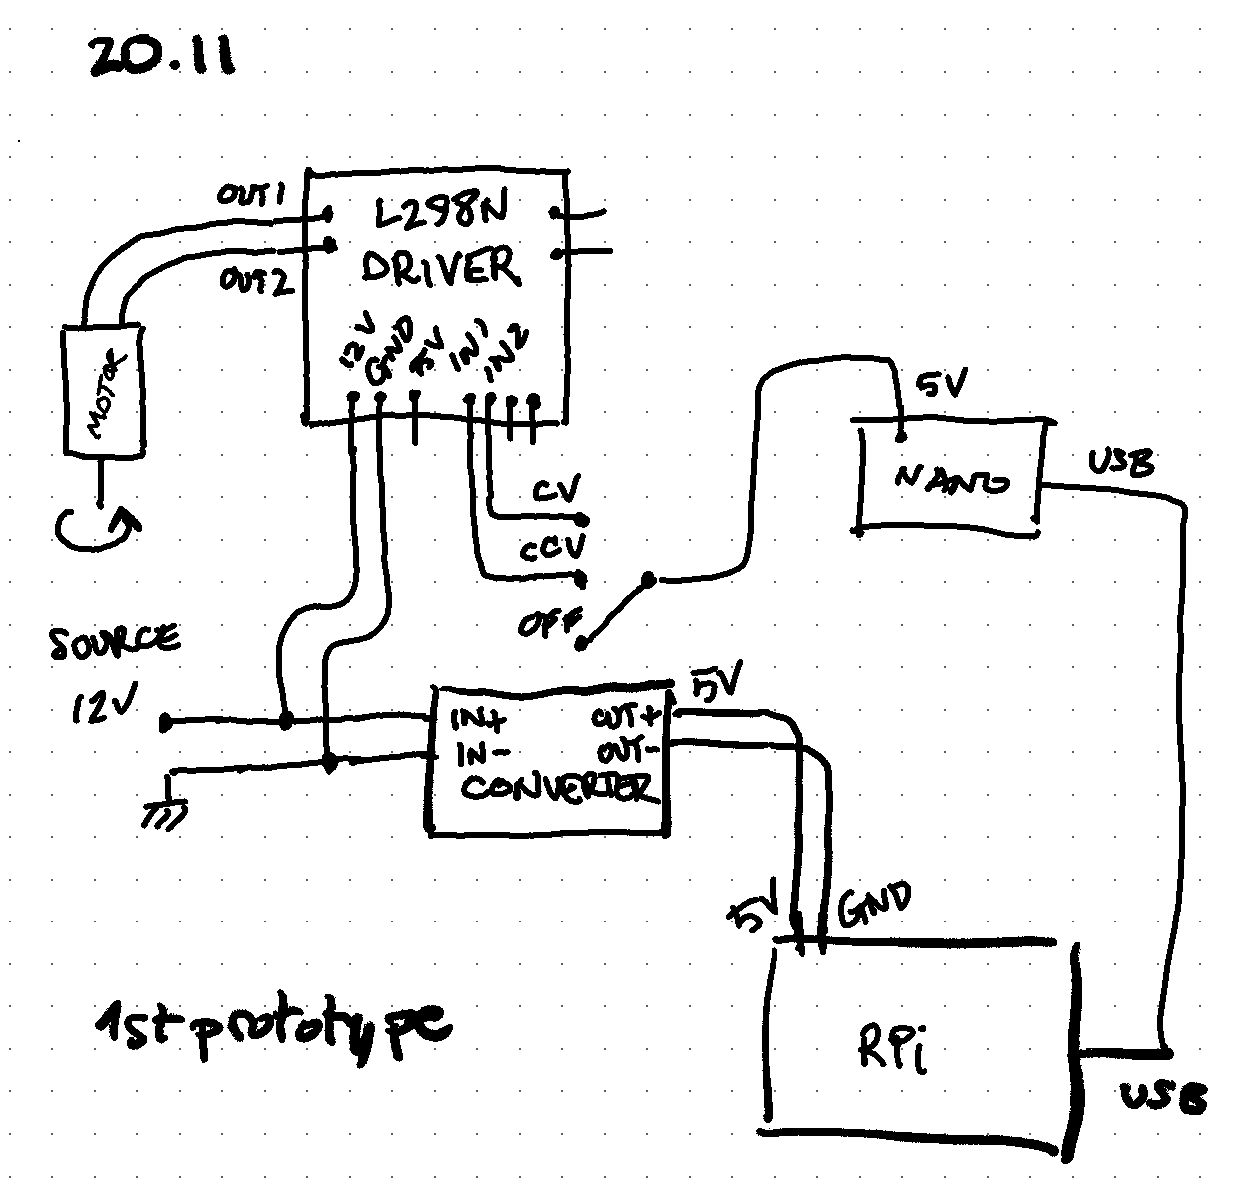 20.11
OUT1
OUT2
L298N
DRIVER
12V
GND
5V
IN1
IN2
MOTOR
CV
CCV
OFF
5V
NANO
USB
SOURCE
12V
IN+
IN-
OUT+
OUT-
CONVERTER
5V
5V
GND
RPi
USB
1st prototype